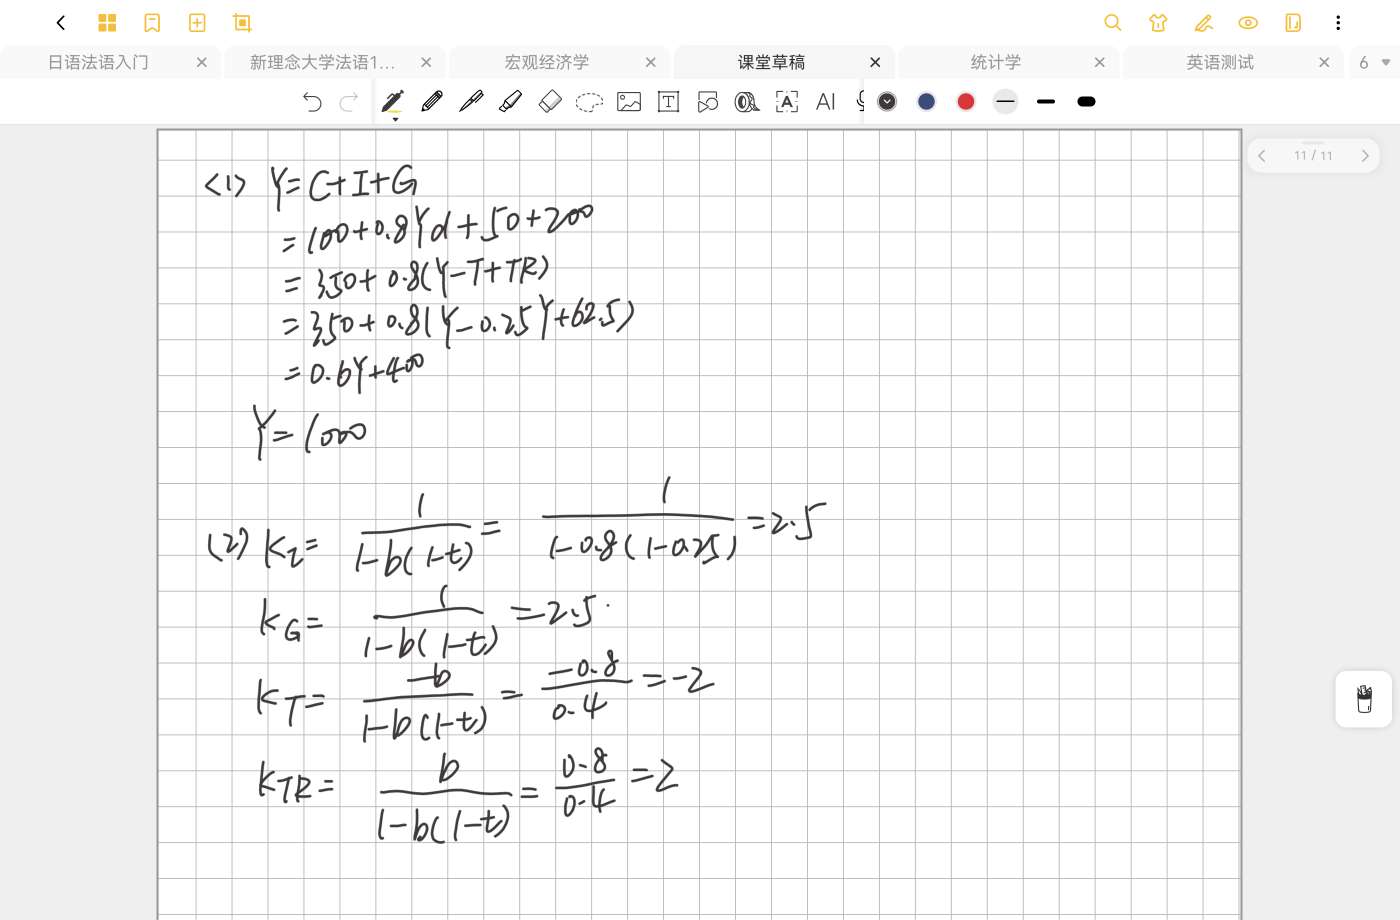 日语法语入门 新理念大学法语1... 宏观经济学 课堂草稿 统计学 英语测试 6
T A AI
11 / 11
<1> Y=C+I+G
=100+0.8Yd+50+200
=350+0.8(Y-T+TR)
=350+0.8(Y-0.25Y+62.5)
=0.6Y+400
Y=1000
(2) KI= 1/(1-b(1-t)) = 1/(1-0.8(1-0.25)) =2.5
KG= 1/(1-b(1-t)) =2.5
KT= -b/(1-b(1-t)) = -0.8/0.4 =-2
KTR= b/(1-b(1-t)) = 0.8/0.4 =2